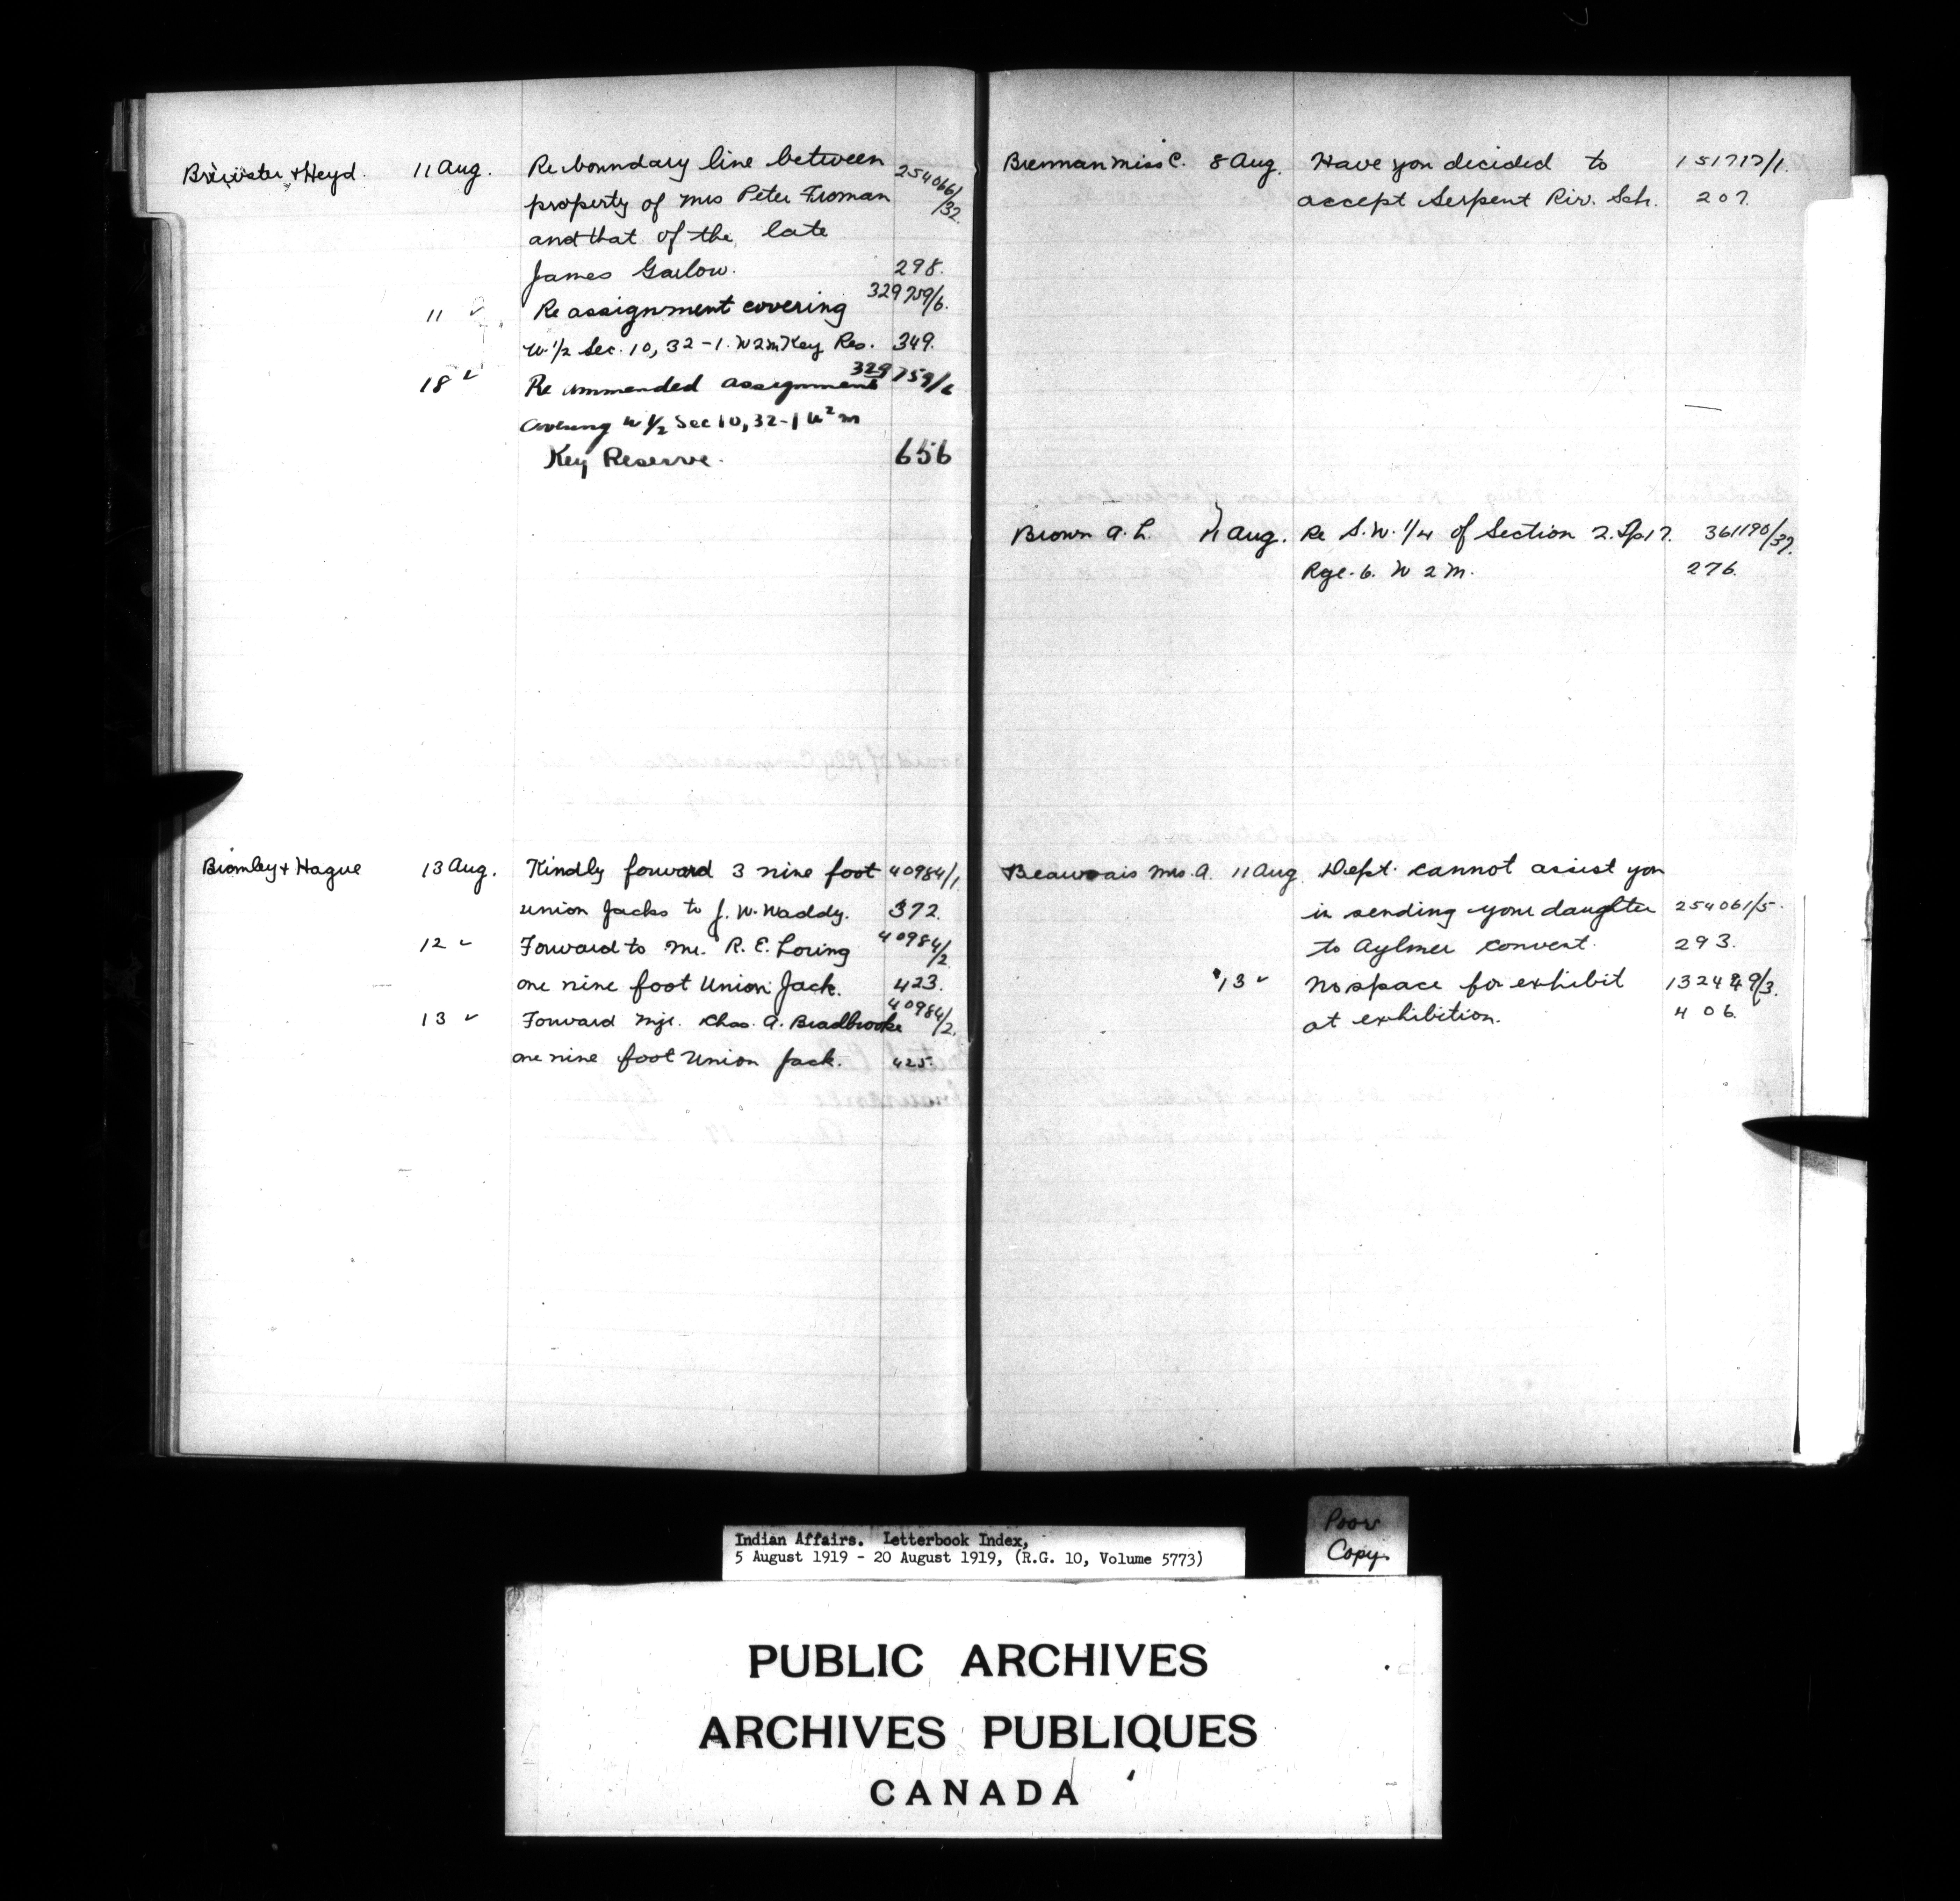 Brewster + Heyd. 11 Aug. Re boundary line between 254066/32.
property of Mrs Peter Froman
and that of the late
James Garlow. 298.
11 " Re assignment covering 329759/6.
W. 1/2 Sec. 10, 32-1. W2M Key Res. 349.
18 " Re ammended assignment 329759/6
Covering W 1/2 Sec 10, 32-1 W2M
Key Reserve. 656
Bromley + Hague 13 Aug. Kindly forward 3 nine foot 40984/1
union Jacks to J. W. Waddy. 372.
12 " Forward to Mr. R. E. Loring 40984/2
one nine foot Union Jack. 423.
13 " Forward Mjr. Chas. A. Bradbrooke 40984/2.
one nine foot Union Jack. 425.
Brennan Miss C. 8 Aug. Have you decided to 151717/1.
accept Serpent Riv. Sch. 207.
Brown A. L. 11 Aug. Re S.W. 1/4 of Section 2. Tp 17. 361190/37.
Rge. 6. W 2 M. 276.
Beauvais Mrs. A. 11 Aug. Dept. cannot assist you
in sending your daughter 254061/5.
to Aylmer convent. 293.
13 " No space for exhibit 132449/3.
at exhibition. 406.
Indian Affairs. Letterbook Index,
5 August 1919 - 20 August 1919, (R.G. 10, Volume 5773)
Poor
Copy.
PUBLIC ARCHIVES
ARCHIVES PUBLIQUES
CANADA